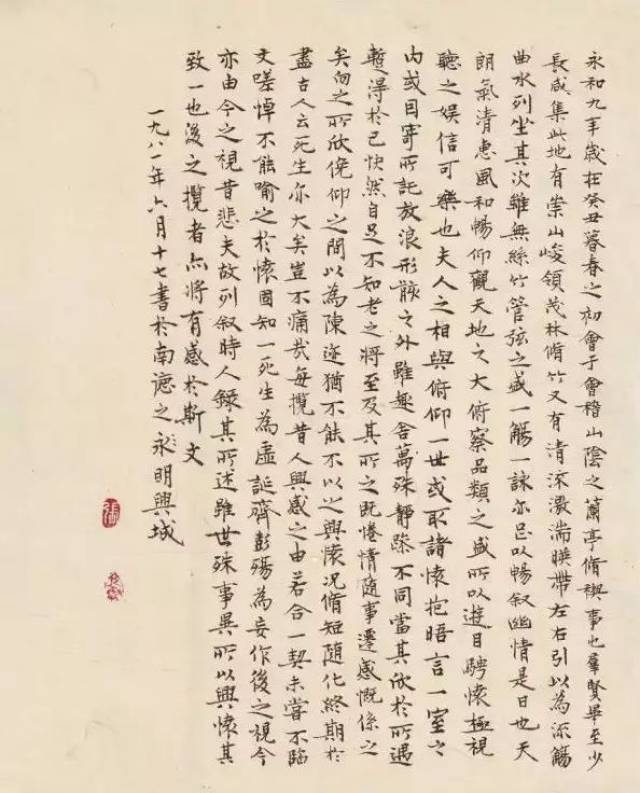 永和九年歲在癸丑暮春之初會于會稽山陰之蘭亭脩禊事也羣賢畢至少
長咸集此地有崇山峻領茂林脩竹又有清流激湍暎帶左右引以為流觴
曲水列坐其次雖無絲竹管弦之盛一觴一詠亦足以暢叙幽情是日也天
朗氣清惠風和暢仰觀天地之大俯察品類之盛所以遊目騁懷極視
聽之娛信可樂也夫人之相與俯仰一世或取諸懷抱晤言一室之
内或因寄所託放浪形骸之外雖趣舍萬殊靜躁不同當其欣於所遇
蹔得於己快然自足不知老之將至及其所之既惓情隨事遷感慨係之
矣向之所欣俛仰之間以為陳迹猶不能不以之興懷況脩短隨化終期於
盡古人云死生亦大矣豈不痛哉每攬昔人興感之由若合一契未嘗不臨
文嗟悼不能喻之於懷固知一死生為虛誕齊彭殤為妄作後之視今
亦由今之視昔悲夫故列叙時人錄其所述雖世殊事異所以興懷其
致一也後之攬者亦將有感於斯文
一九八一年六月十七書於南之永明興城
張